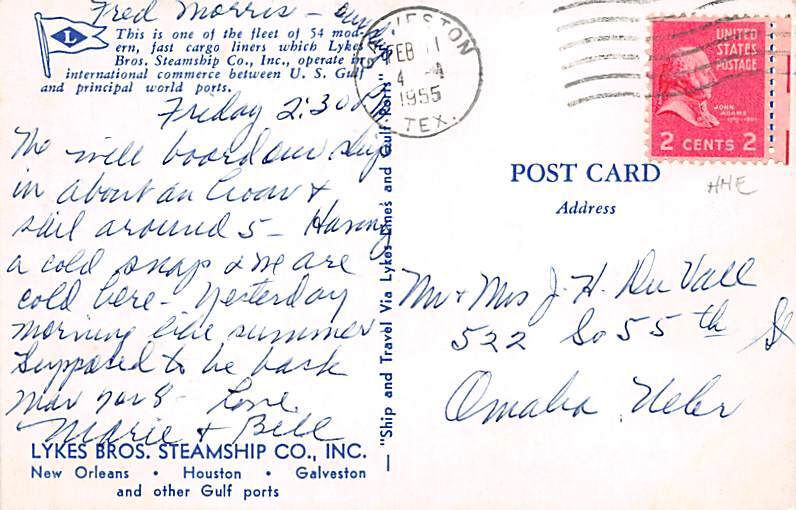 Fred Morris -
L
This is one of the fleet of 54 mod-
ern, fast cargo liners which Lykes
Bros. Steamship Co., Inc., operate in
international commerce between U. S. Gulf
and principal world ports.
Friday 2:30 PM
We will board our ship
in about an hour &
sail around 5 - Having
a cold snap & we are
cold here - Yesterday
morning like summer
Supposed to be back
Mar 7 or 8 - Love,
Marie & Bill
LYKES BROS. STEAMSHIP CO., INC.
New Orleans • Houston • Galveston
and other Gulf ports
"Ship and Travel Via Lykes Lines and Gulf Ports"
GALVESTON
FEB 11
4
1955
TEX.
UNITED
STATES
POSTAGE
JOHN
ADAMS
2 CENTS 2
HHE
POST CARD
Address
Mr & Mrs J. H. Du Vall
522 So 55th St
Omaha, Nebr